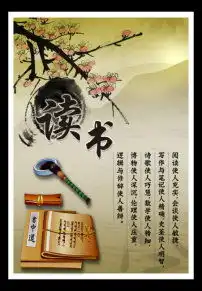 读书
阅读使人充实,会谈使人敏捷,
写作与笔记使人精确,史鉴使人明智,
诗歌使人巧慧,数学使人精细,
博物使人深沉,伦理使人庄重,
逻辑与修辞使人善辩。